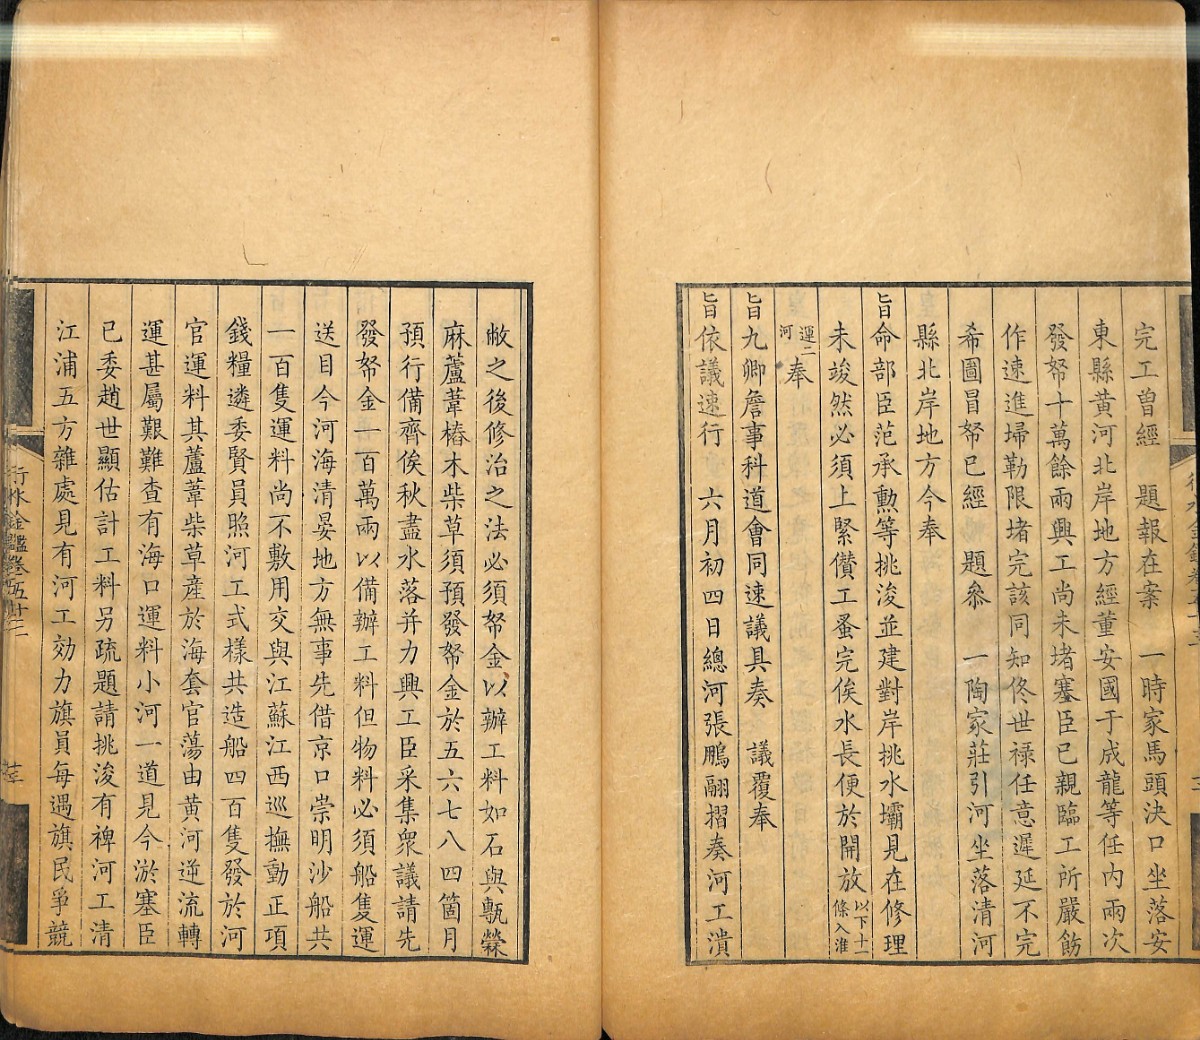 完工曾經　題報在案　一時家馬頭決口坐落安
東縣黃河北岸地方經董安國于成龍等任內兩次
發帑十萬餘兩興工尚未堵塞臣已親臨工所嚴飭
作速進埽勒限堵完該同知佟世祿任意遲延不完
希圖冒帑已經　題叅　一陶家莊引河坐落清河
縣北岸地方今奉
旨命部臣范承勲等挑浚並建對岸挑水壩見在修理
未竣然必須上緊儹工蚤完俟水長便於開放以下十一條入淮
運二河奉
旨九卿詹事科道會同速議具奏　議覆奉
旨依議速行　六月初四日總河張鵬翮摺奏河工潰
敝之後修治之法必須帑金以辦工料如石與甎檾
麻蘆葦樁木柴草須預發帑金於五六七八四箇月
預行備齊俟秋盡水落并力興工臣采集衆議請先
發帑金一百萬兩以備辦工料但物料必須船隻運
送目今河海清晏地方無事先借京口崇明沙船共
一百隻運料尚不敷用交與江蘇江西巡撫動正項
錢糧遴委賢員照河工式樣共造船四百隻發於河
官運料其蘆葦柴草產於海套官蕩由黃河逆流轉
運甚屬艱難查有海口運料小河一道見今淤塞臣
已委趙世顯估計工料另疏題請挑浚有裨河工清
江浦五方雜處見有河工効力旗員每遇旗民爭競
行水金鑑卷五十三